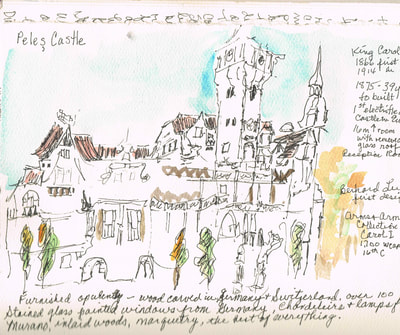 Peleș Castle
King Carol
1866 first
1914
1875 - 39 y
to built
1st electrified
Castle in Eu
16 m ↑ room
with removea
glass roof
Reception Roo
Bernard Le
first desig
Arms + Arm
Collection
Carol I
1200 weap
14th C
Furnished opulently - wood carved in Germany + Switzerland. over 100
Stained glass painted windows from Germany Chandeliers + lamps f
Murano, inlaid woods, marquetry, the best of everything.